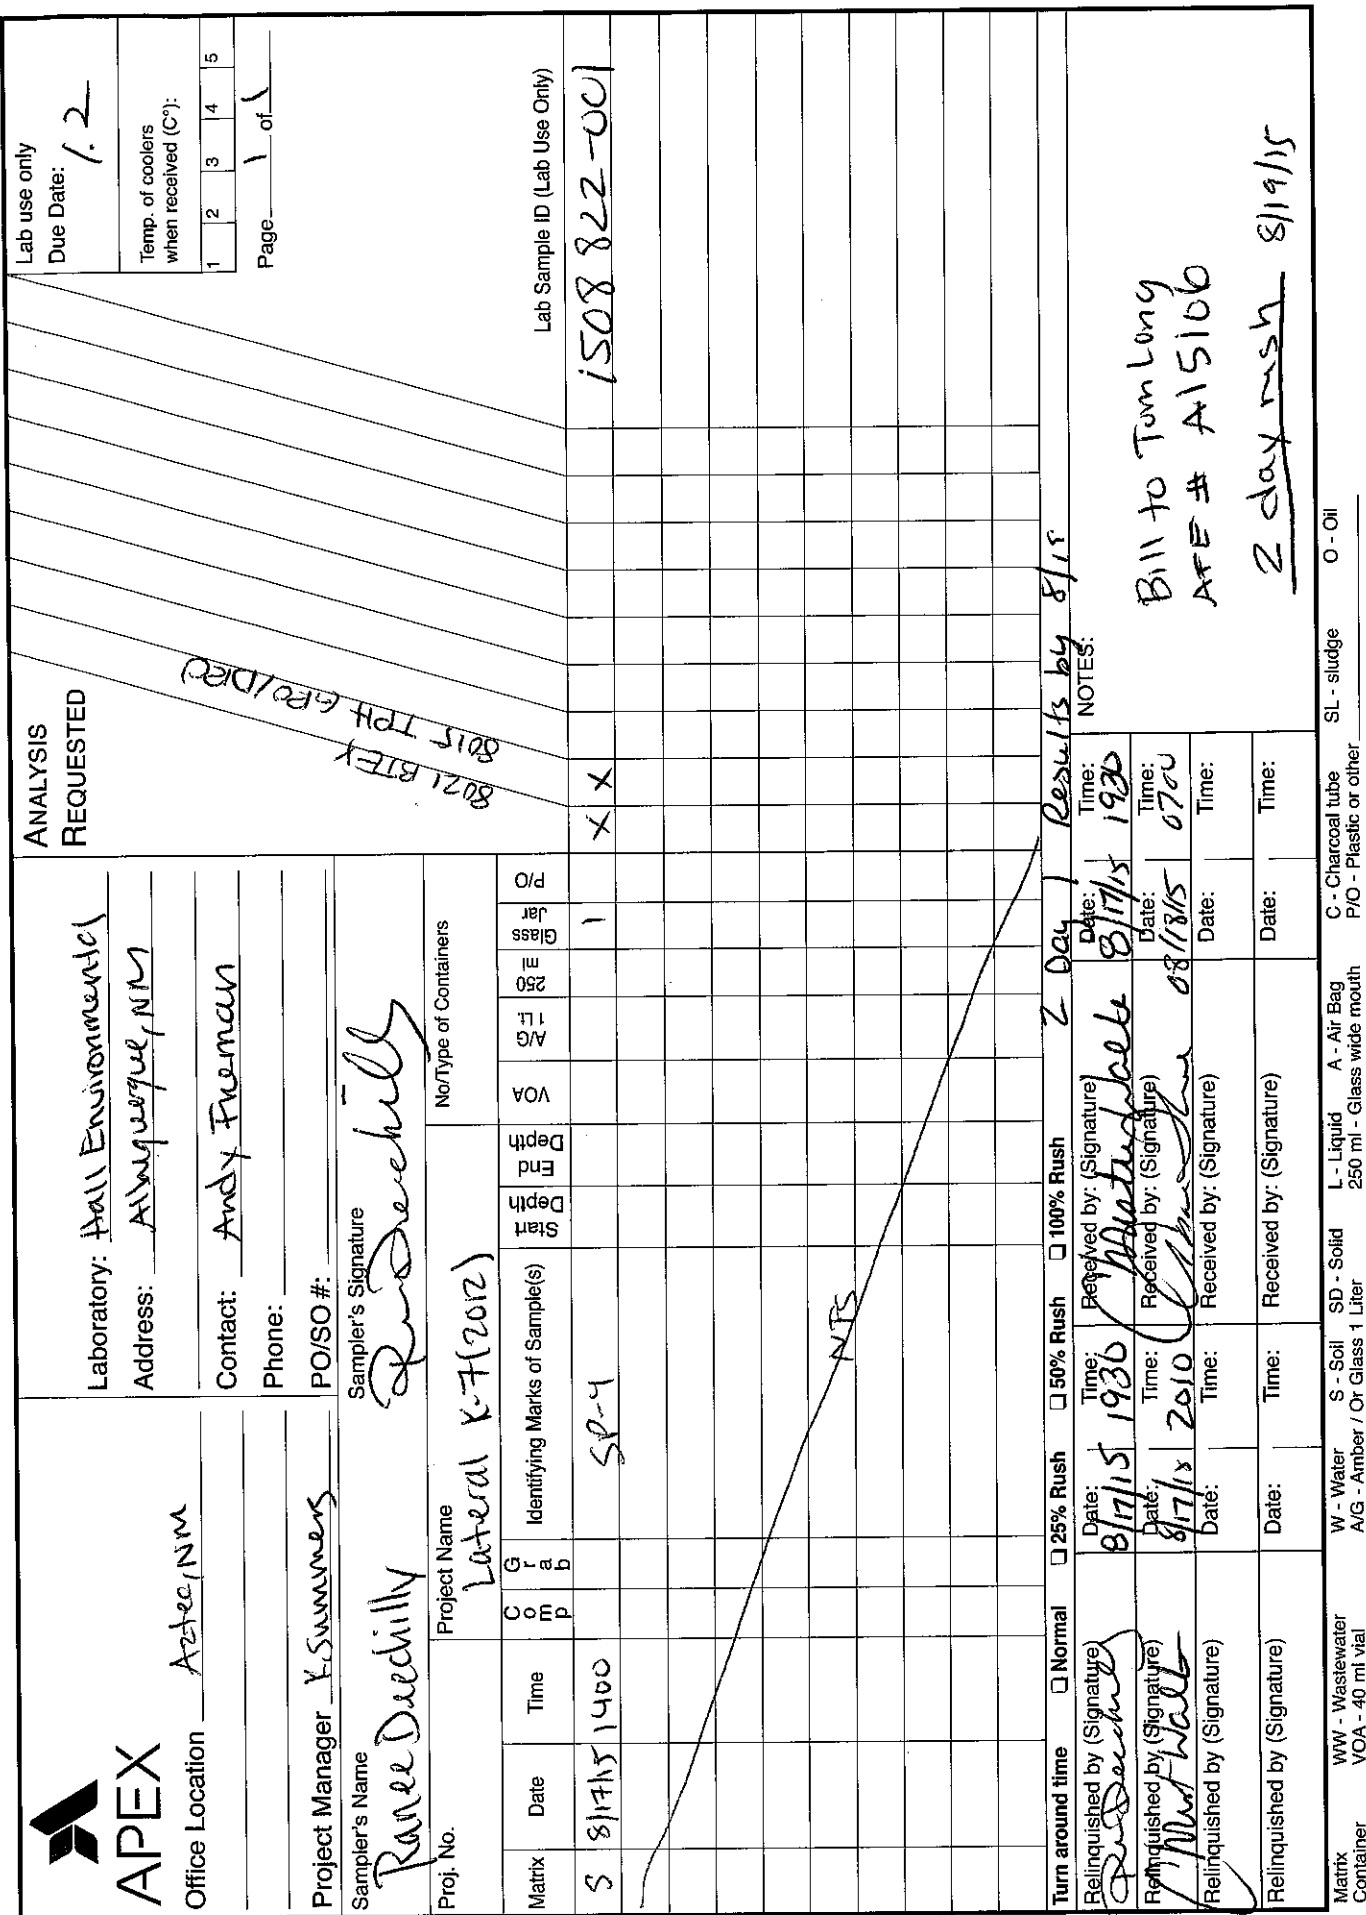 APEX
Office Location Aztec, NM
Project Manager K. Summers
Laboratory: Hall Environmental
Address: Albuquerque, NM
Contact: Andy Freeman
Phone:
PO/SO #:
Sampler's Name
Ranee Deechilly
Sampler's Signature
ANALYSIS
REQUESTED
8021 BTEX
8015 TPH GRO/DRO
Lab use only
Due Date:
1.2
Temp. of coolers
when received (C°):
1 2 3 4 5
Page 1 of 1
Proj. No.
Project Name
Lateral K-7 (2012)
No/Type of Containers
Matrix Date Time Comp Grab Identifying Marks of Sample(s) Start Depth End Depth VOA A/G 1 Lt. 250 ml Glass Jar P/O Lab Sample ID (Lab Use Only)
S 8/17/15 1400 SP-4 1 X X 1508822-001
NFS
Turn around time ☐ Normal ☐ 25% Rush ☐ 50% Rush ☐ 100% Rush 2 Day / Results by 8/19
Relinquished by (Signature) Date: 8/17/15 Time: 1930 Received by: (Signature) Date: 8/17/15 Time: 1930
Relinquished by (Signature) Date: 8/17/15 Time: 2010 Received by: (Signature) Date: 08/18/15 Time: 0700
Relinquished by (Signature) Date: Time: Received by: (Signature) Date: Time:
Relinquished by (Signature) Date: Time: Received by: (Signature) Date: Time:
NOTES:
Bill to Tom Long
AFE # A15106
2 day rush 8/19/15
Matrix WW - Wastewater W - Water S - Soil SD - Solid L - Liquid A - Air Bag C - Charcoal tube SL - sludge O - Oil
Container VOA - 40 ml vial A/G - Amber / Or Glass 1 Liter 250 ml - Glass wide mouth P/O - Plastic or other